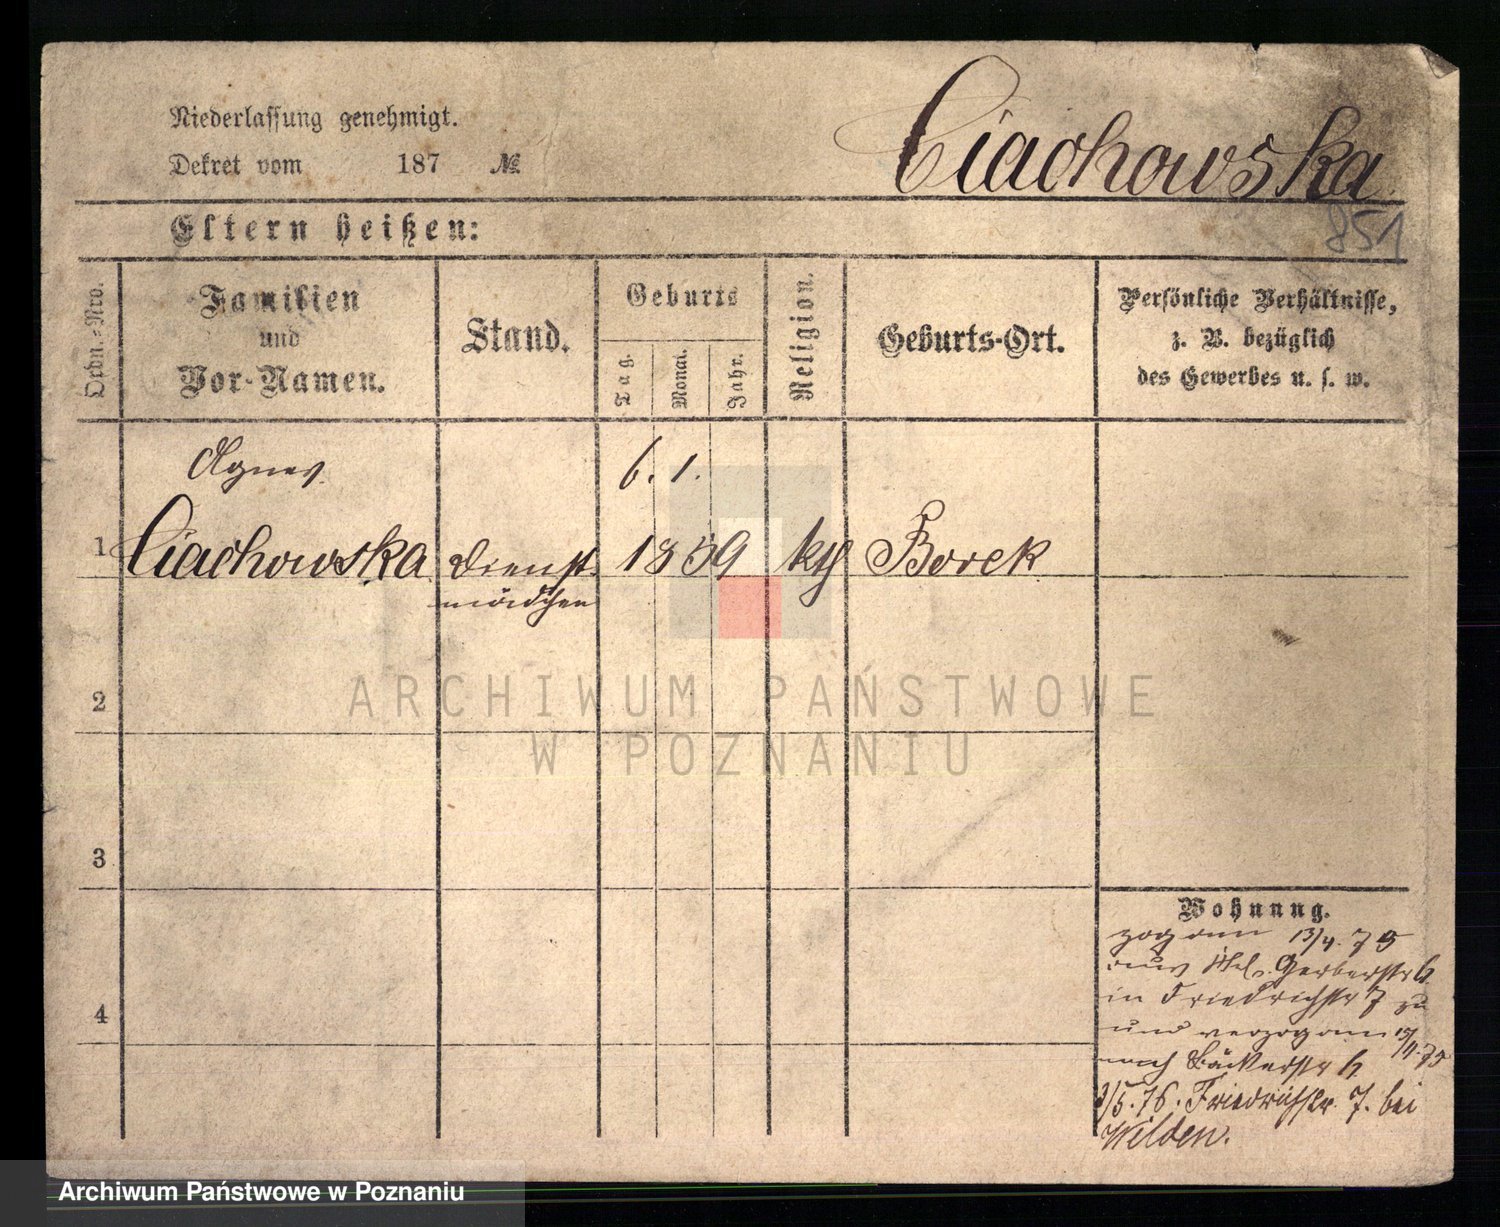 Niederlassung genehmigt.
Dekret vom 187 №
Ciachowska
851
Eltern heißen:
Ordn.-Nro.
Familien
und
Vor-Namen.
Stand.
Geburts
Tag.
Monat.
Jahr.
Religion.
Geburts-Ort.
Persönliche Verhältnisse,
z. B. bezüglich
des Gewerbes u. s. w.
Agnes
6. 1.
1 Ciachowska Dienst 1859 kth Borek
mädchen
2
3
4
Wohnung.
zog am 13/4. 75
aus Gerberstr 6
in Friedrichstr 7 zu
und verzog am 15/4. 75
nach Bäckerstr 6
3/5. 76. Friedrichstr. 7. bei
Wilden.
ARCHIWUM PAŃSTWOWE
W POZNANIU
Archiwum Państwowe w Poznaniu